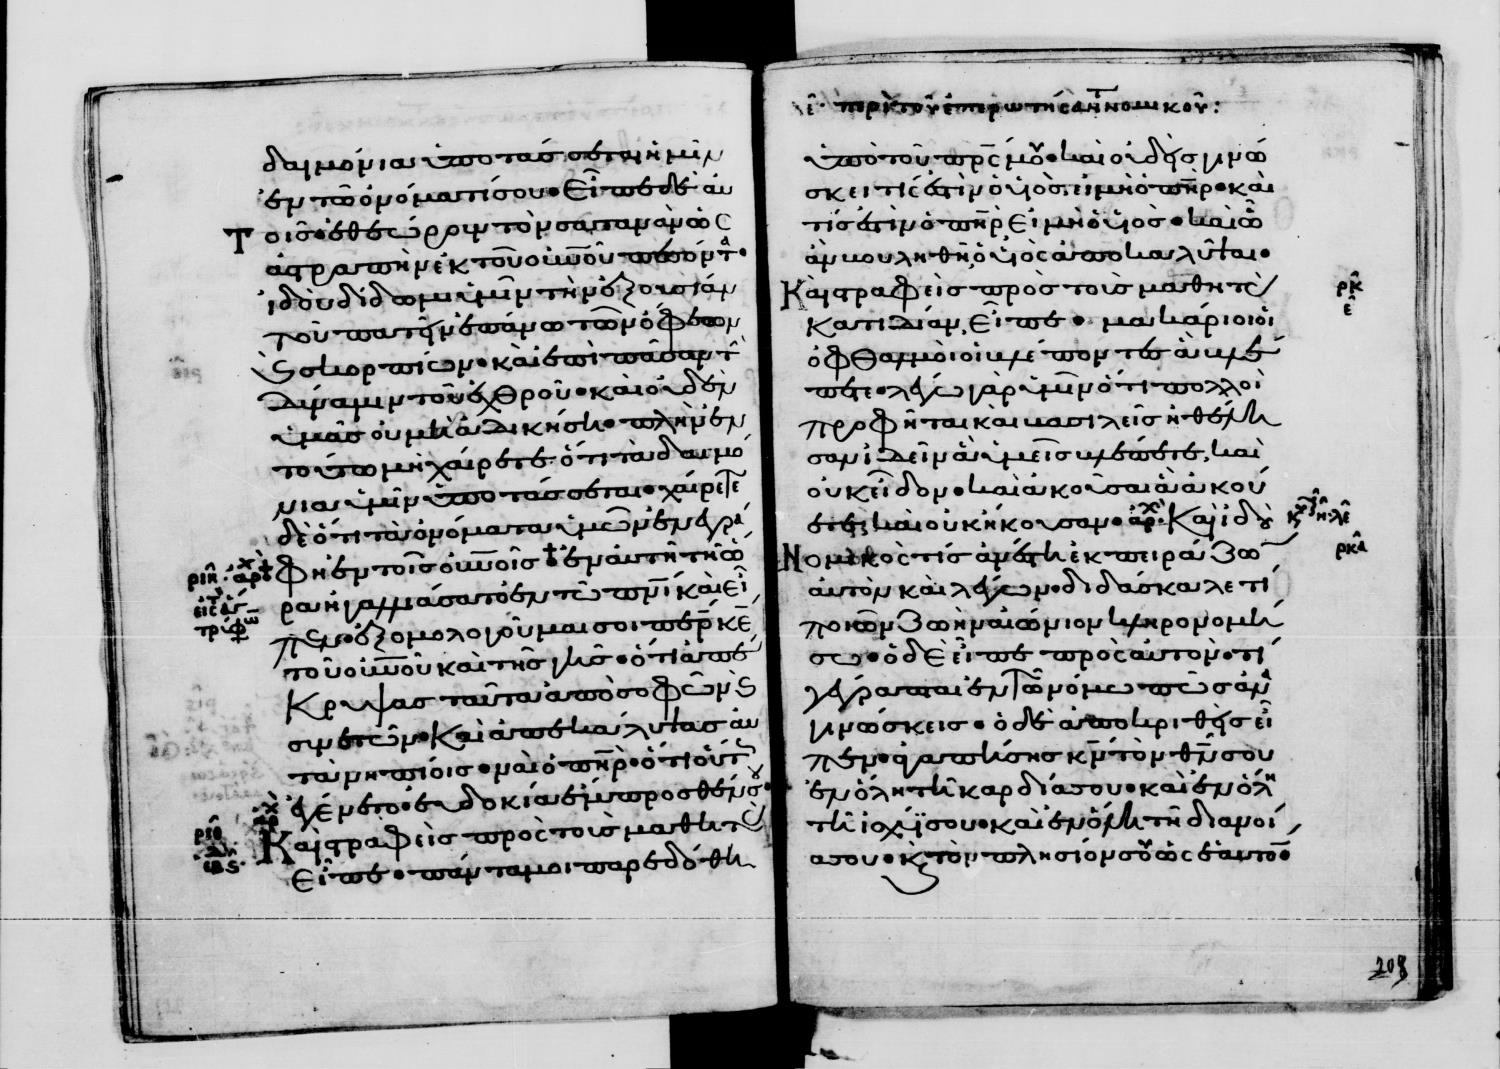 δαιμόνια ὑποτάσσεται ἡμῖν
ἐν τῶ ὀνόματί σου· Εἶπε δὲ αὐ
τοῖς· ἐθεώρουν τὸν σαταναν ὡς
ἀστραπὴν ἐκ τοῦ οὐνοῦ πεσόντα·
ἰδοὺ δίδωμι ὑμῖν τὴν ἐξουσίαν
τοῦ πατεῖν ἐπάνω τῶν ὄφεων
ϗ σκορπίων· καὶ ἐπὶ πᾶσαν τὴν
δύναμιν τοῦ ἐχθροῦ· καὶ οὐδὲν
ὑμᾶς οὐ μὴ ἀδικήση· πλὴν ἐν
τούτω μὴ χαίρετε ὅτι τὰ δαιμό
νια ὑμῖν ὑποτάσσεται· χαίρετε
δὲ ὅτι τὰ ὀνόματα ὑμῶν ἐγρά
φη ἐν τοῖς οὐνοῖς ἐν αὐτῆ τῆ ὥ
ρα ἠγαλλιάσατο ἐν τῶ πνὶ καὶ εἶ
πεν· ἐξομολογοῦμαι σοι περ κε
τοῦ οὐνοῦ καὶ τῆς γῆς· ὅτι ἀπέ
κρυψας ταῦτα ἀπὸ σοφῶν ϗ
συνετῶν· Καὶ ἀπεκάλυψας αὐ
τὰ νηπίοις· ναὶ ὁ πηρ· ὅτι οὕτως
ἐγένετο εὐδοκία ἔμπροσθέν σου·
Καὶ στραφεὶς πρὸς τοὺς μαθητὰς
Εἶπε· πάντα μοι παρεδόθη
ριη
ριθ
ε· περὶ τοῦ ἐπερωτήσαντος νομικοῦ:
ὑπὸ τοῦ πρς μου· καὶ οὐδεὶς γινώ
σκει τίς ἐστιν ὁ υἱὸς, εἰ μὴ ὁ πηρ· καὶ
τίς ἐστιν ὁ πηρ Εἰ μὴ ὁ υἱὸς· καὶ ὧ
ἂν βουληθῆ ὁ υἱὸς ἀποκαλύψαι·
Καὶ στραφεὶς πρὸς τοὺς μαθητὰς
κατιδίαν, Εἶπε· μακάριοι οἱ
ὀφθαλμοὶ οἱ βλέποντες ἃ βλέ
πετε· λέγω γὰρ ὑμῖν ὅτι πολλοὶ
προφῆται καὶ βασιλεῖς ἠθέλη
σαν ἰδεῖν ἃ ὑμεῖς βλέπετε, καὶ
οὐκ εἶδον· καὶ ἀκοῦσαι ἃ ἀκού
ετε, καὶ οὐκ ἤκουσαν· Καὶ ἰδοὺ
Νομικός τις ἀνέστη ἐκπειράζω
αὐτὸν καὶ λέγων· διδάσκαλε τί
ποιῶν ζωὴν αἰώνιον κληρονομή
σω· ὁ δὲ Εἶπε πρὸς αὐτὸν· τί
γέγραπται ἐν τῶ νόμω πῶς ἀνα
γινώσκεις· ὁ δὲ ἀποκριθεὶς εἶ
πεν· ἀγαπήσης κν τὸν θν σου
ἐν ὅλη τῆ καρδία σου· καὶ ἐν ὅλη
τῆ ἰσχύϊ σου· καὶ ἐν ὅλη τῆ διανοί
α σου· ϗ τὸν πλησίον σου ὡς ἑαυτόν·
ρκ
ε
ρκα
208